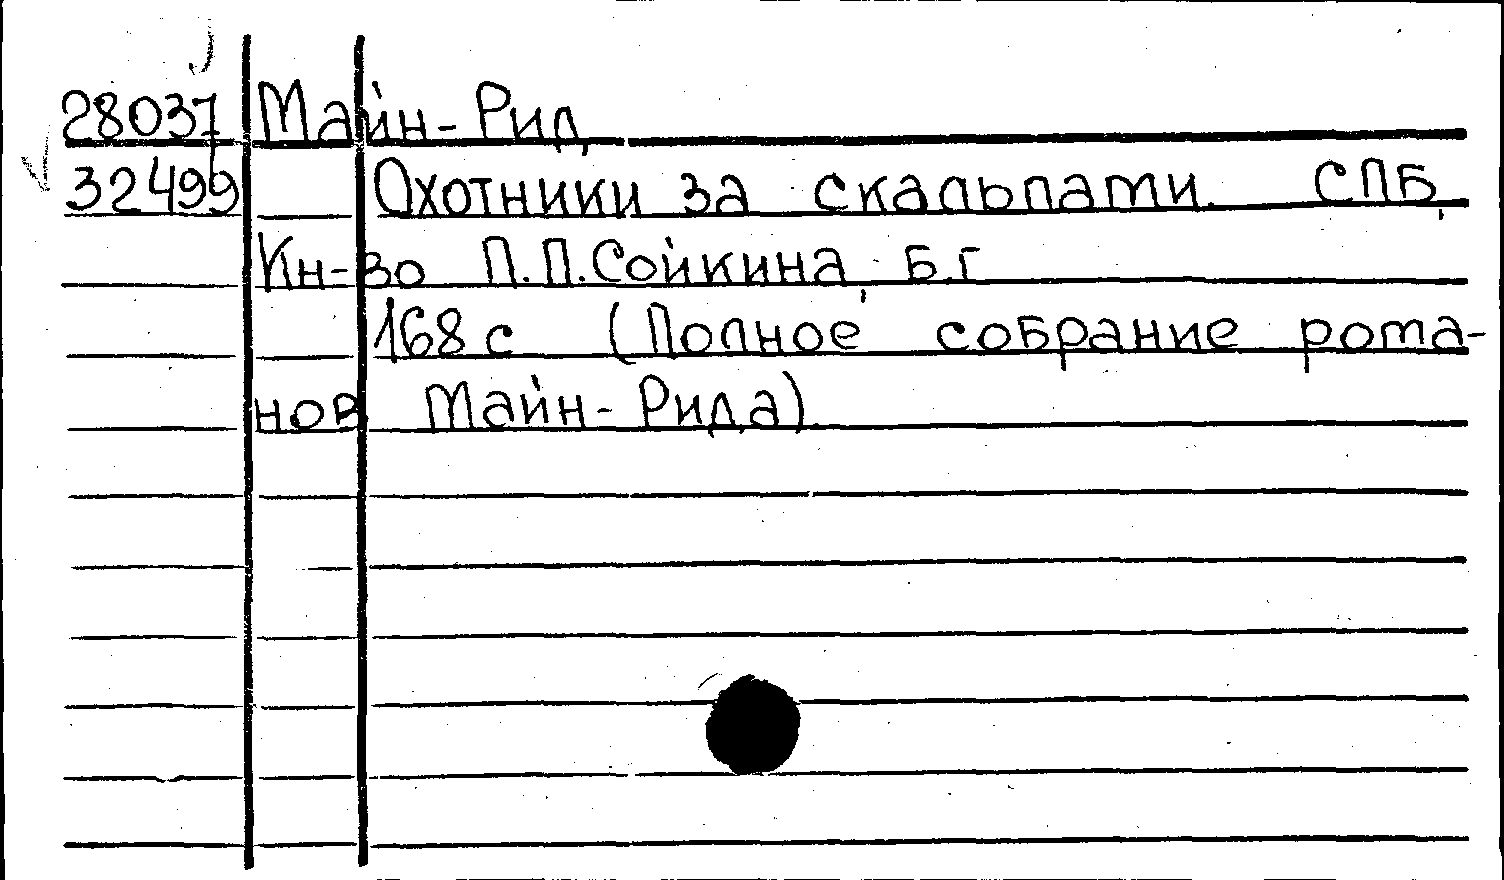 28037 Майн-Рид
32499 Охотники за скальпами. СПБ,
Кн-во П.П.Сойкина, Б.г
168 с (Полное собрание рома-
нов Майн-Рида).